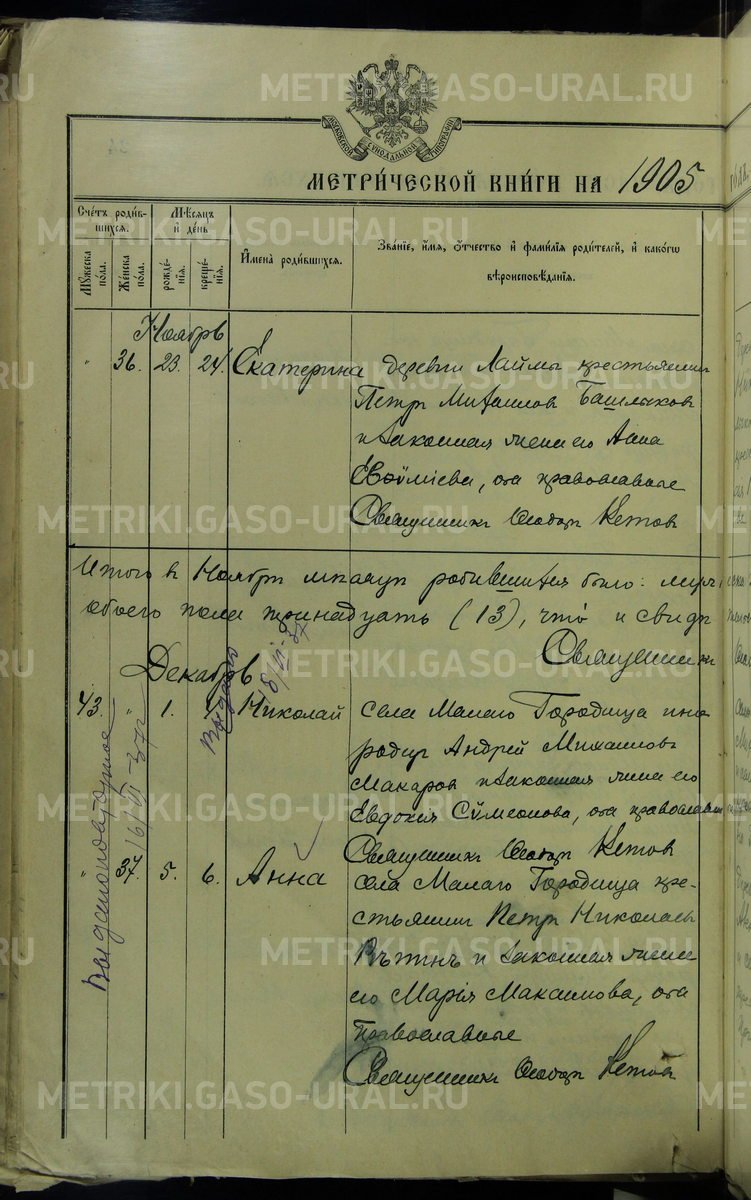 METRIKI.GASO-URAL.RU
МОСКОВСКОЙ СѴНОДАЛЬНОЙ ТИПОГРАФІИ
МЕТРИ́ЧЕСКОЙ КНИ́ГИ НА 1905
Сче́тъ роди́в-
шихся.
Мѣ́сяцъ
и҆ де́нь
Мꙋ́жеска
по́ла.
Же́нска
по́ла.
рожде́-
нїѧ.
креще́-
нїѧ.
И҆мена̀ роди́вшихся.
Зва́нїе, и҆́мѧ, ѻ҆́тчество и҆ фами́лїѧ роди́телей, и҆ како́гѡ
вѣроисповѣ́данїѧ.
Ноябрь
" 36. 23. 24. Екатерина деревни Лаймы крестьянинъ
Петръ Михаиловъ Башлыковъ
и законная жена его Анна
Евѳиміева, оба православные
Священникъ Ѳеодоръ Кетовъ
Итого въ Ноябрѣ мѣсяцѣ родившихся было: муж
обоего пола тринадцать (13), что и свидѣ
Священникъ
Декабрь
43. " 1. Николай села Малаго Городища ино
родецъ Андрей Михаиловъ
Макаровъ и законная жена его
Евдокія Сѵмеонова, оба православные
Священникъ Ѳеодоръ Кетовъ
" 37. 5. 6. Анна села Малаго Городища кре-
стьянинъ Петръ Николаевъ
и законная жена
его Марія Максимова, оба
православные
Священникъ Ѳеодоръ Кетовъ
Выдано
16/VI-37г